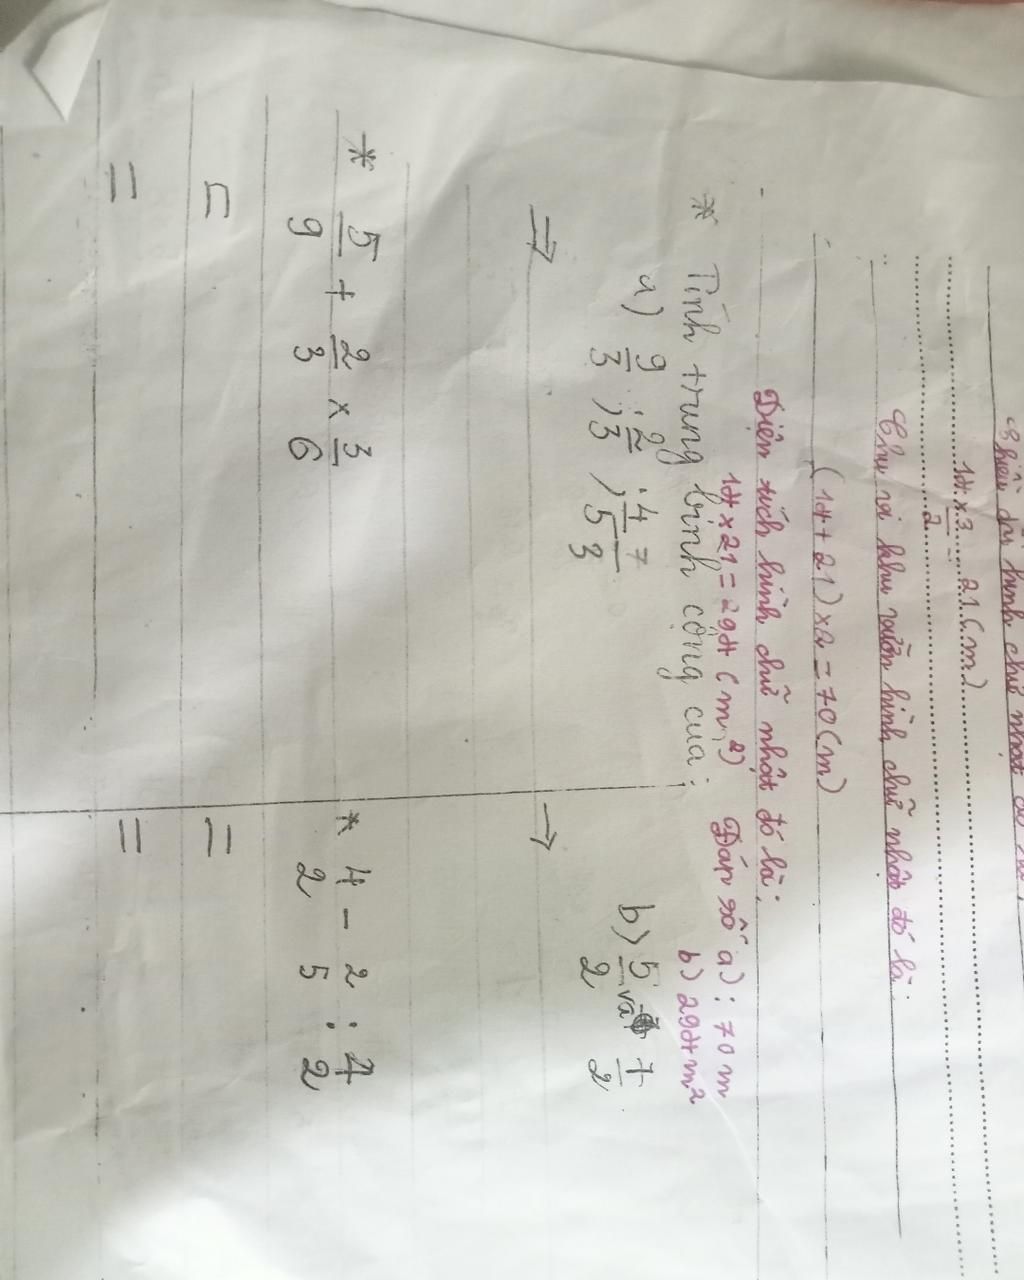 chiều dài hình chữ nhật
14 × 3/2 = 21 (m)
Chu vi khu vườn hình chữ nhật đó là:
(14 + 21) × 2 = 70 (m)
Diện tích hình chữ nhật đó là:
14 × 21 = 294 (m²) Đáp số a) : 70 m
b) 294 m²
* Tính trung bình cộng của:
a) 9/3 ; 2/3 ; 4/5 7/3 b) 5/2 và 7/2
⇒ →
* 5/9 + 2/3 × 3/6 * 4/2 - 2/5 : 4/2
= =
= =